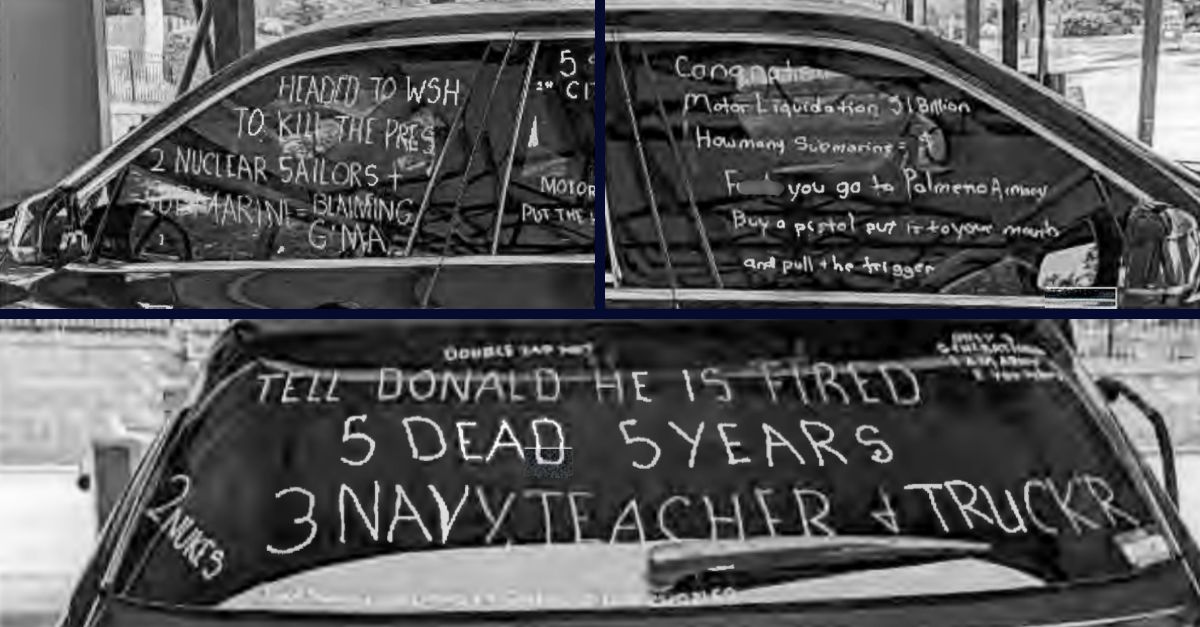 HEADED TO WSH
TO KILL THE PRES
2 NUCLEAR SAILORS +
SUBMARINE = BLAIMING
G'MA
5
CI
MOTOR
PUT THE
Motor Liquidation $1 Billion
How many Submarine =
you go to Palmeno Armory
Buy a pistol put it to your mouth
and pull the trigger
DOUBLE TAP NOT
ONLY 2
GENERATIONS
TELL DONALD HE IS FIRED
5 DEAD 5 YEARS
3 NAVY, TEACHER & TRUCKR
2 NUKES